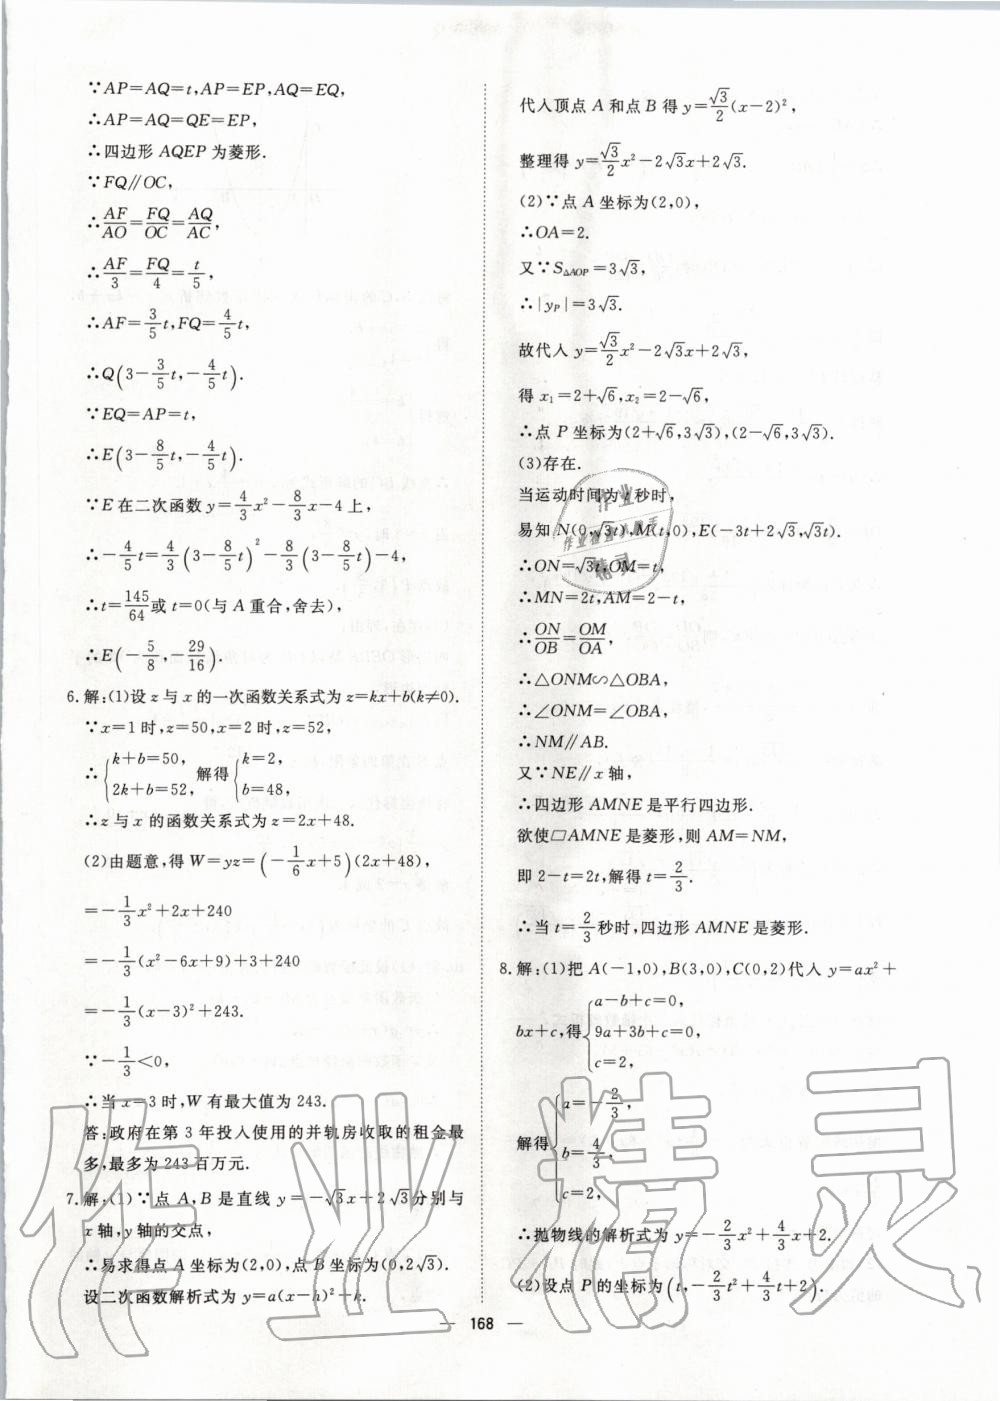 ∵AP=AQ=t,AP=EP,AQ=EQ,
∴AP=AQ=QE=EP,
∴四边形 AQEP 为菱形.
∵FQ∥OC,
∴AF/AO=FQ/OC=AQ/AC,
∴AF/3=FQ/4=t/5,
∴AF=3/5t,FQ=4/5t,
∴Q(3-3/5t,-4/5t).
∵EQ=AP=t,
∴E(3-8/5t,-4/5t).
∵E 在二次函数 y=4/3x²-8/3x-4 上,
∴-4/5t=4/3(3-8/5t)²-8/3(3-8/5t)-4,
∴t=145/64或 t=0(与 A 重合,舍去),
∴E(-5/8,-29/16).
6.解:(1)设 z 与 x 的一次函数关系式为 z=kx+b(k≠0).
∵x=1 时,z=50,x=2 时,z=52,
∴{k+b=50, 2k+b=52, 解得{k=2, b=48,
∴z 与 x 的函数关系式为 z=2x+48.
(2)由题意,得 W=yz=(-1/6x+5)(2x+48),
=-1/3x²+2x+240
=-1/3(x²-6x+9)+3+240
=-1/3(x-3)²+243.
∵-1/3<0,
∴当 x=3 时,W 有最大值为 243.
答:政府在第 3 年投入使用的并轨房收取的租金最
多,最多为 243 百万元.
7.解:(1)∵点 A,B 是直线 y=-√3x+2√3分别与
x 轴,y 轴的交点,
∴易求得点 A 坐标为(2,0),点 B 坐标为(0,2√3).
设二次函数解析式为 y=a(x-h)²+k.
代入顶点 A 和点 B 得 y=√3/2(x-2)²,
整理得 y=√3/2x²-2√3x+2√3.
(2)∵点 A 坐标为(2,0),
∴OA=2.
又∵S△AOP=3√3,
∴|yP|=3√3.
故代入 y=√3/2x²-2√3x+2√3,
得 x₁=2+√6,x₂=2-√6,
∴点 P 坐标为(2+√6,3√3),(2-√6,3√3).
(3)存在.
当运动时间为 t 秒时,
易知 N(0,√3t),M(t,0),E(-3t+2√3,√3t).
∴ON=√3t,OM=t,
∴MN=2t,AM=2-t,
∴ON/OB=OM/OA,
∴△ONM∽△OBA,
∴∠ONM=∠OBA,
∴NM∥AB.
又∵NE∥x 轴,
∴四边形 AMNE 是平行四边形.
欲使▱AMNE 是菱形,则 AM=NM,
即 2-t=2t,解得 t=2/3.
∴当 t=2/3秒时,四边形 AMNE 是菱形.
8.解:(1)把 A(-1,0),B(3,0),C(0,2)代入 y=ax²+
bx+c,得{a-b+c=0, 9a+3b+c=0, c=2,
解得{a=-2/3, b=4/3, c=2,
∴抛物线的解析式为 y=-2/3x²+4/3x+2.
(2)设点 P 的坐标为(t,-2/3t²+4/3t+2).
— 168 —
作业精灵
作业
作业检查小助手
精灵